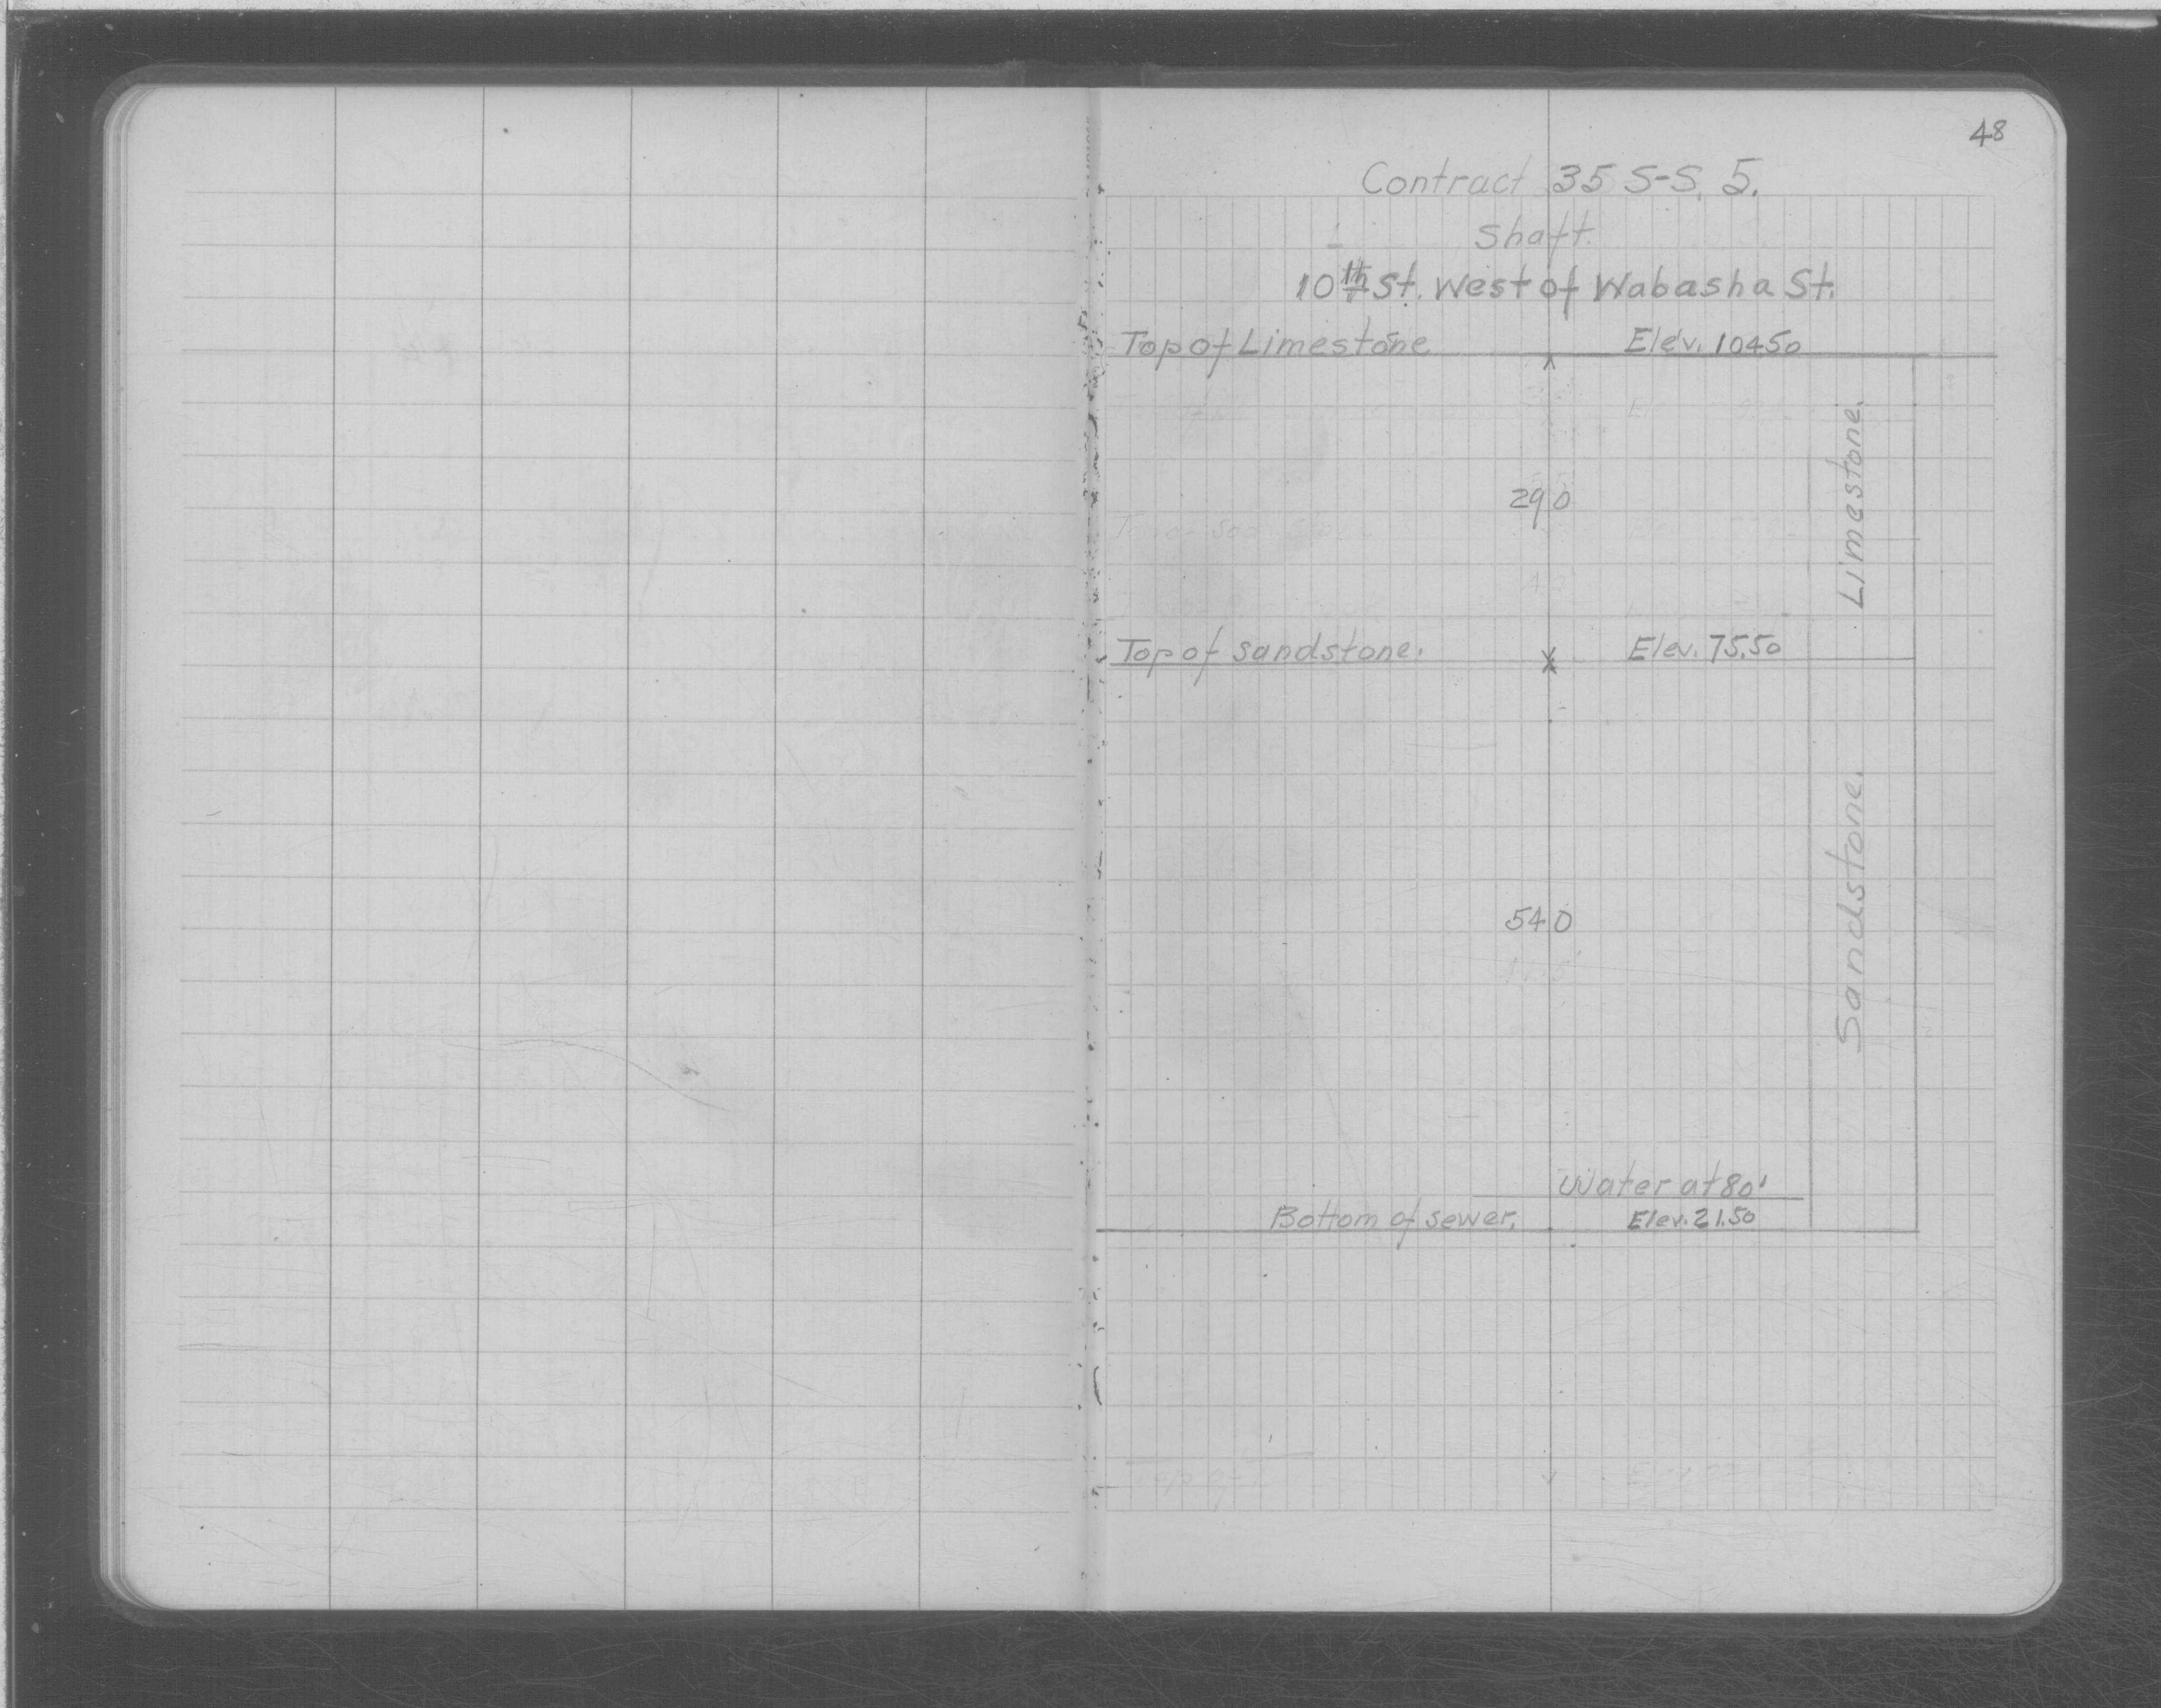 48
Contract 35 S-S. 5.
Shaft.
10th St. West of Wabasha St.
Top of Limestone Elev. 10450
Limestone.
29 0
Top of sandstone. Elev. 75.50
Sandstone.
54 0
Water at 80'
Bottom of sewer. Elev. 21.50